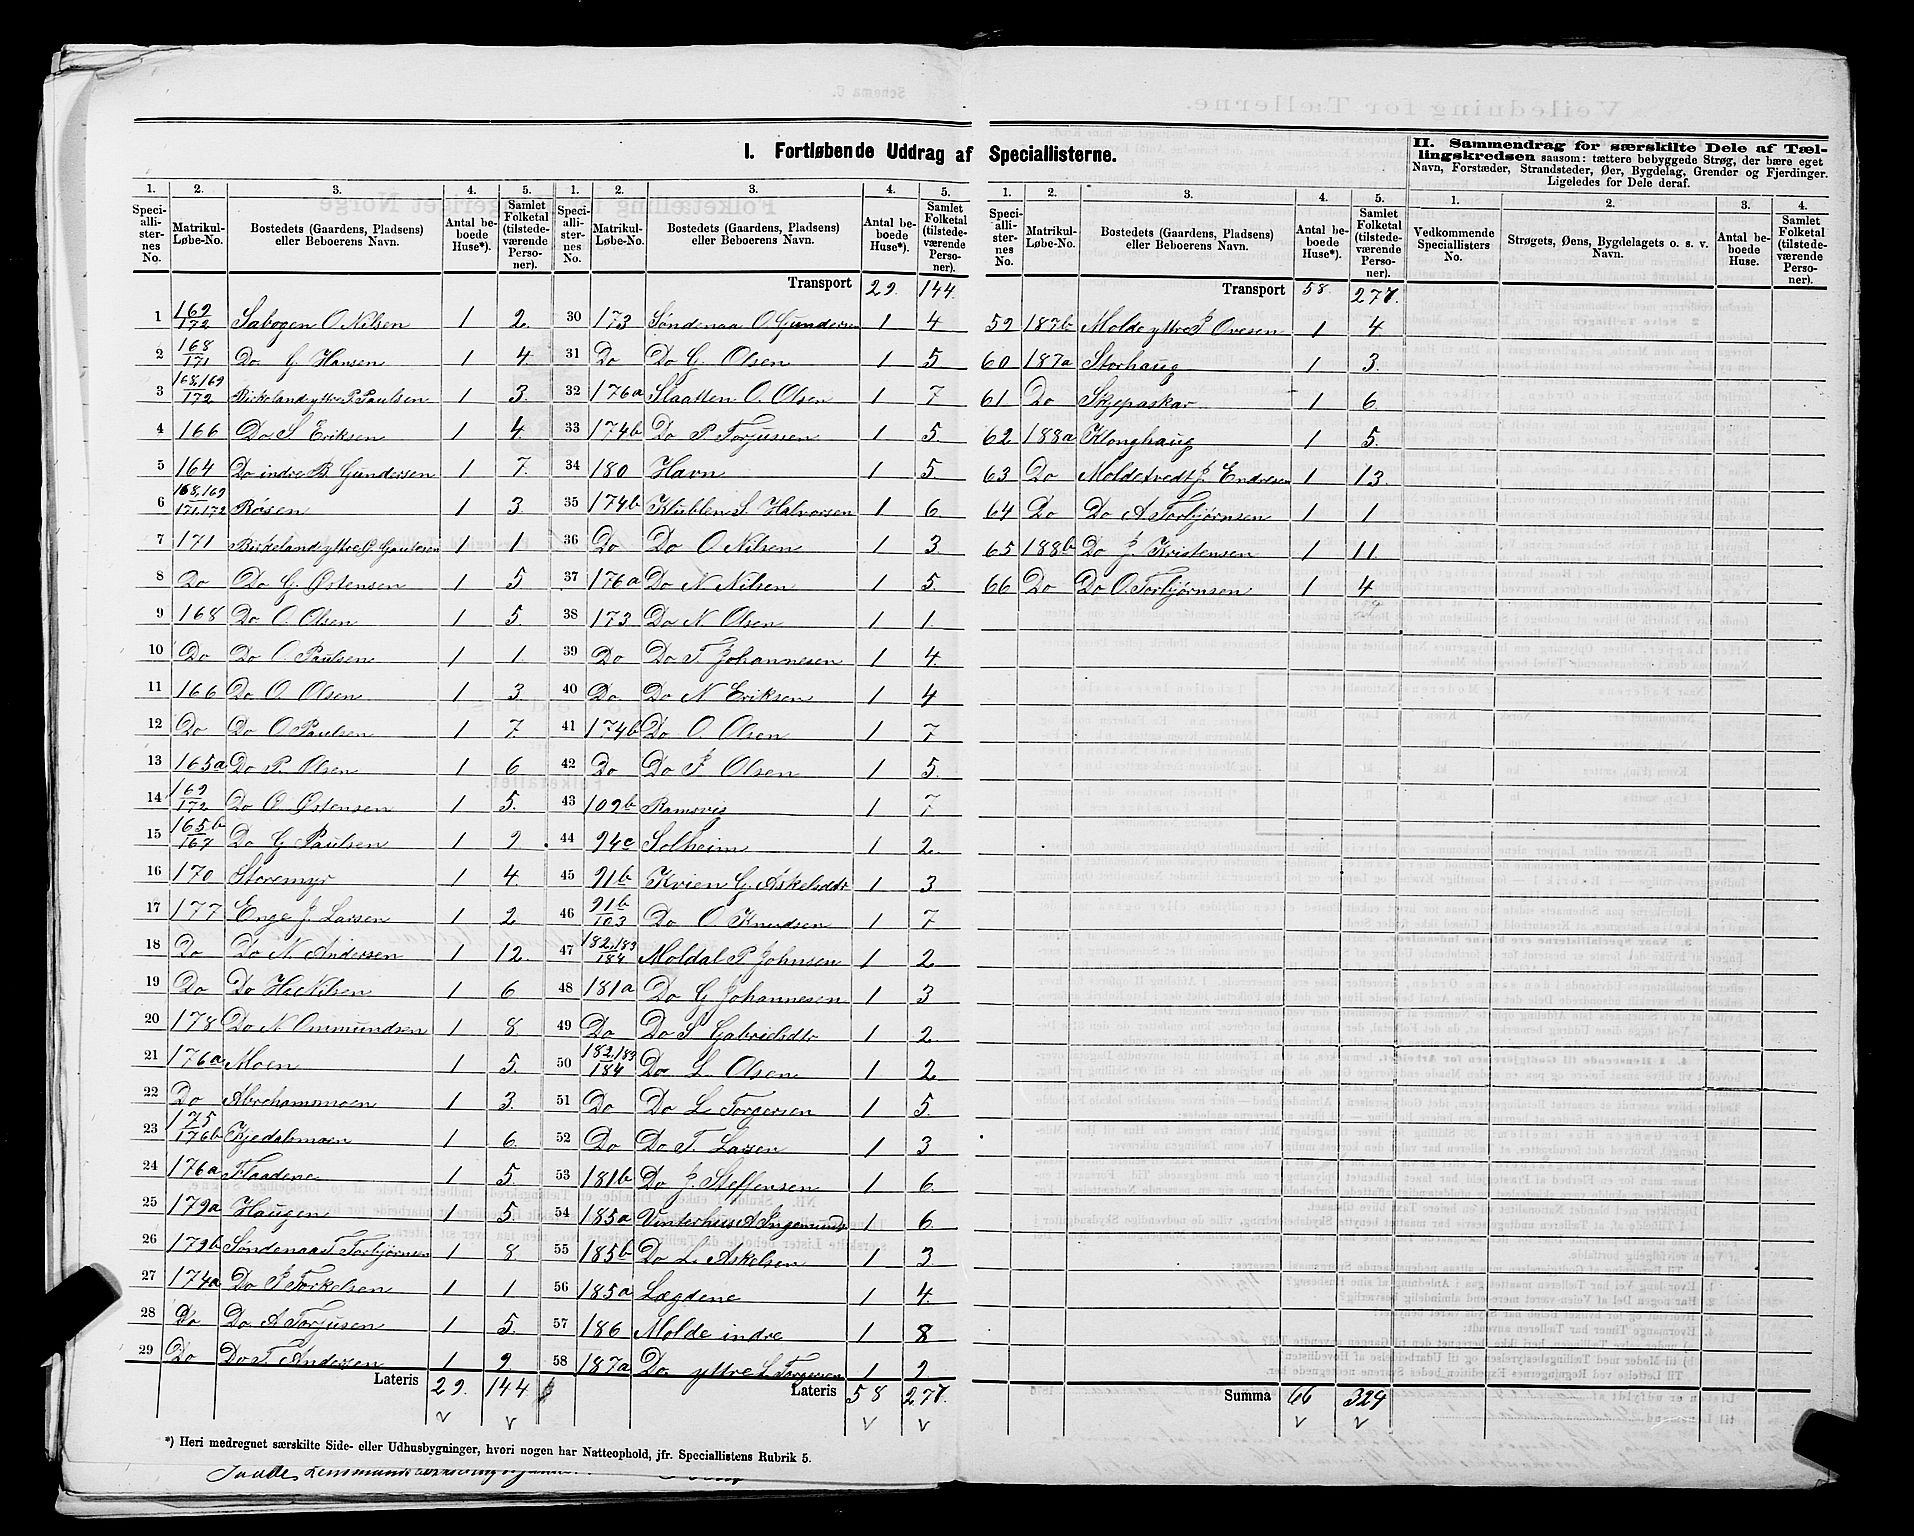 I. Fortløbende Uddrag af Speciallisterne.
II. Sammendrag for særskilte Dele af Tællingskredsen saasom: tættere bebyggede Strøg, der bære eget Navn, Forstæder, Strandsteder, Øer, Bygdelag, Grender og Fjerdinger. Ligeledes for Dele deraf.
1. 2. 3. 4. 5.
Speciallisternes No. Matrikul-Løbe-No. Bostedets (Gaardens, Pladsens) eller Beboerens Navn. Antal beboede Huse*). Samlet Folketal (tilstedeværende Personer).
1 169/172 Sabogen O Nilsen 1 2.
2 168/171 Do G Hansen 1 4.
3 168,169/172 Birkeland yttre P. Paulsen 1 3.
4 166 Do S Eriksen 1 4.
5 164 Do indre B. Gundersen 1 7.
6 168,169/171,172 Røsen 1 3.
7 171 Birkeland yttre G. Paulsen 1 1
8 Do Do G. Østensen 1 5
9 168 Do O. Olsen 1 5.
10 Do Do O. Paulsen 1 1.
11 166 Do O. Olsen 1 3
12 Do Do O Paulsen 1 7.
13 165a Do P. Olsen 1 6
14 169/172 Do O Østensen 1 5.
15 165b/167 Do G Paulsen 1 9
16 170 Storemyr 1 4.
17 177 Enge J. Larsen 1 2
18 Do Do N. Andersen 1 12.
19 Do Do H. Nilsen 1 6
20 178 Do N Ommundsen 1 8
21 176a Moen 1 5.
22 Do Abrahamsmoen 1 3.
23 175/176b Kjedalsmoen 1 6.
24 176a Flaadene 1 5.
25 179a Haugen 1 5
26 179b Søndenaa T Torbjørnsen 1 8
27 174a Do P Torkelsen 1 1
28 Do Do A Torjusen 1 5.
29 Do Do T. Andersen 1 9.
Lateris 29. 144
1. 2. 3. 4. 5.
Speciallisternes No. Matrikul-Løbe-No. Bostedets (Gaardens, Pladsens) eller Beboerens Navn. Antal beboede Huse*). Samlet Folketal (tilstedeværende Personer).
Transport 29. 144.
30 173 Søndenaa O Gundersen 1 4
31 Do Do G. Olsen 1 5
32 176a Slaatten O. Olsen 1 7
33 174b Do P Torjussen 1 5.
34 180 Havn 1 5
35 174b Klublen S. Halvorsen 1 6
36 Do Do O Nilsen 1 3.
37 176a Do N Nilsen 1 5.
38 173 Do N Olsen 1 1.
39 Do Do T. Johannesen 1 4.
40 Do Do N Eriksen 1 4
41 174b Do O. Olsen 1 7
42 Do Do J Olsen 1 5.
43 109b Ramsvig 1 7
44 94c Solheim 1 2.
45 91b Kvien G. Askelsdtr 1 3
46 91b/103 Do O Knudsen 1 7
47 182,183/184 Moldal P Johnsen 1 2
48 181a Do G Johannesen 1 3
49 Do Do S Gabrielsdtr 1 2
50 182,183/184 Do L. Olsen 1 2
51 Do Do L Torgersen 1 5.
52 Do Do T. Larsen 1 3
53 181b Do J Steffensen 1 6.
54 185a Vinterhus A Ingemunds 1 6.
55 185b Do L. Askelsen 1 3
56 185a Lægdene 1 4.
57 186 Molde indre 1 8
58 187a Do yttre L Torgersen 1 9
Lateris 58 277.
1. 2. 3. 4. 5.
Speciallisternes No. Matrikul-Løbe-No. Bostedets (Gaardens, Pladsens) eller Beboerens Navn. Antal beboede Huse*). Samlet Folketal (tilstedeværende Personer).
Transport 58. 277.
59 187b Molde yttre J Ovesen 1 4
60 187a Storhaug 1 3.
61 Do Skjepaskar 1 6.
62 188a Klonghaug 1 5.
63 Do Moldetvedt J. Endresen 1 13.
64 Do Do A Torbjørnsen 1 1
65 188b Do J. Kristensen 1 11.
66 Do Do O. Torbjørnsen 1 4
Summa 66 324
1. 2. 3. 4.
Vedkommende Speciallisters No. Strøgets, Øens, Bygdelagets o. s. v. Navn. Antal beboede Huse. Samlet Folketal (tilstedeværende Personer).
*) Heri medregnet særskilte Side- eller Udhusbygninger, hvori nogen har Natteophold, jfr. Speciallistens Rubrik 5.